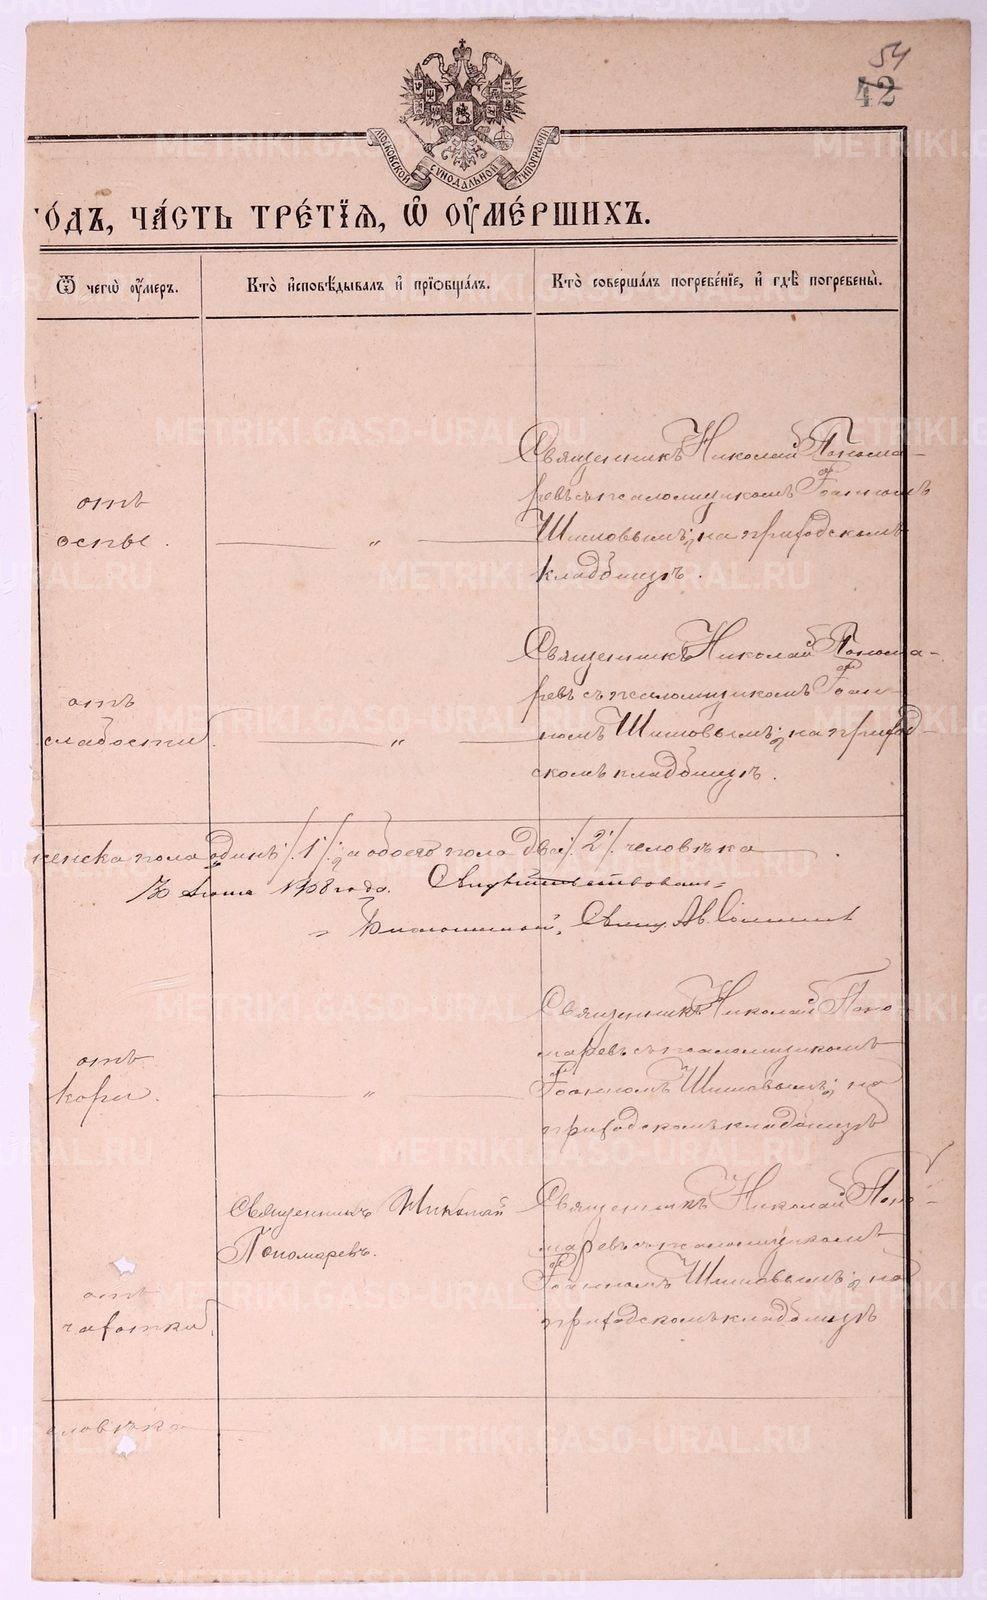 54
42
МОСКОВСКОЙ СѴНОДАЛЬНОЙ ТИПОГРАФІИ
го́дъ, ча́сть тре́тїѧ, ѡ҆ ᲂу҆ме́ршихъ.
Ѿ чегѡ̀ ᲂу҆́меръ.
Кто̀ и҆сповѣ́дывалъ и҆ прїѡбща́лъ.
Кто̀ соверша́лъ погребе́нїе, и҆ гдѣ̀ погребены̀.
отъ
оспы.
— " —
Священникъ Николай Понома-
ревъ съ псаломщикомъ Іоанномъ
Шиловымъ; на приходскомъ
кладбищѣ.
отъ
слабости.
— " —
Священникъ Николай Понома-
ревъ съ псаломщикомъ Іоан-
номъ Шиловымъ; на приход-
скомъ кладбищѣ.
женска пола одинъ /.1./; а обоего пола два /.2./. человѣка
1908 года. Свидѣтельствовалъ
Благочинный, Свящ. Ав.
отъ
кори.
— " —
Священникъ Николай Поно
маревъ съ псаломщикомъ
Іоанномъ Шиловымъ; на
приходскомъ кладбищѣ
отъ
чахотки.
Священникъ Николай
Пономаревъ.
Священникъ Николай Поно-
маревъ съ псаломщикомъ
Іоанномъ Шиловымъ; на
приходскомъ кладбищѣ
еловѣка
METRIKI.GASO-URAL.RU